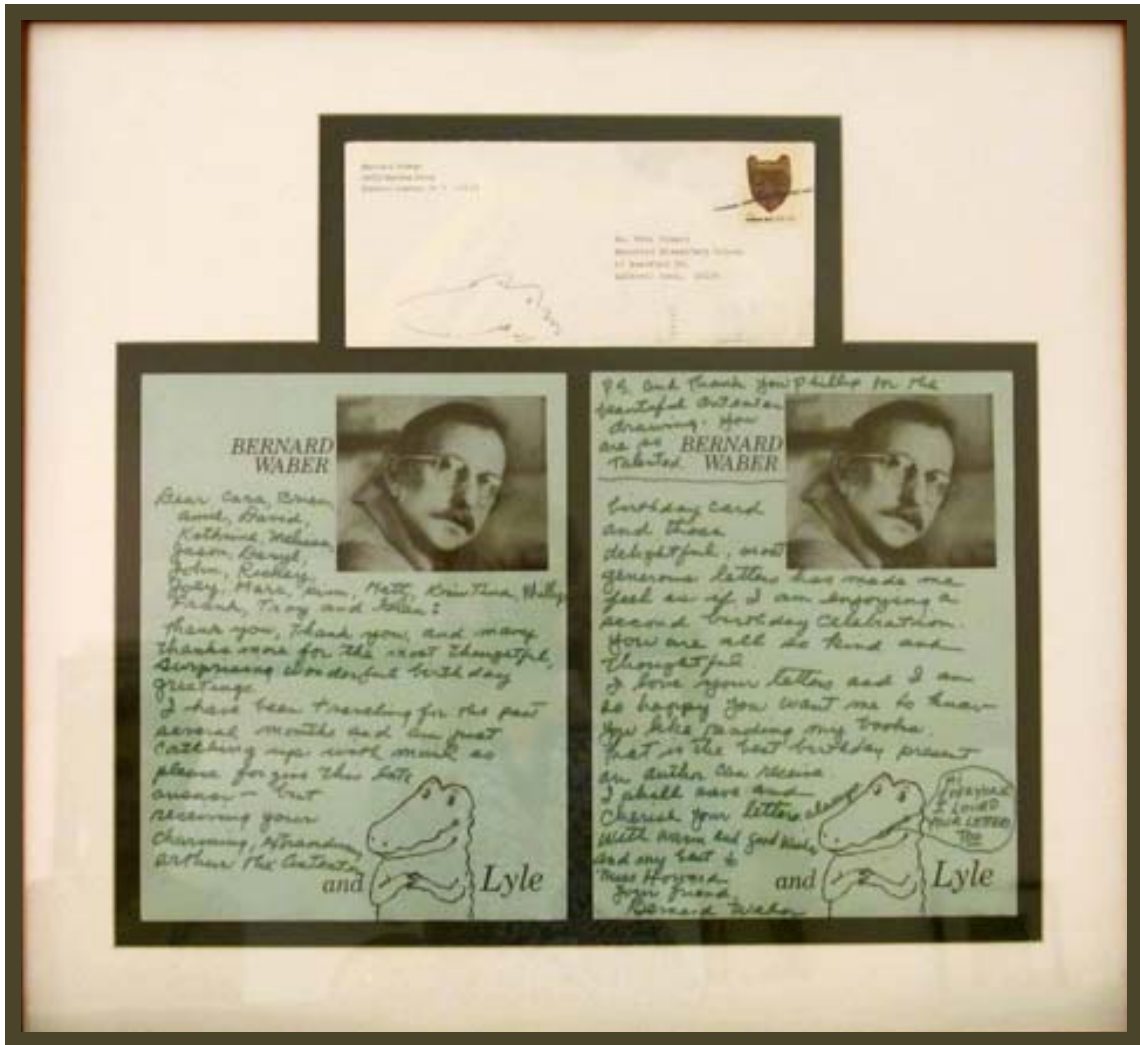 BERNARD
WABER
Dear Cara, Brian,
David,
Kathrine, Melissa,
Jason, Daryl,
John, Rickey,
Joey, Mara, Matt, Kristina,
Frank, Troy and
Thank you, thank you, and many
thanks more for the most thoughtful,
surprising wonderful birthday
greetings
I have been traveling for the past
several months and am just
catching up with mail so
please forgive this late
answer — but
receiving your
charming,
Arthur the Anteater
and Lyle
P.S. and thank you Phillip for the
beautiful anteater
drawing. You
are so
talented
BERNARD
WABER
birthday card
and those
delightful, most
generous letters has made me
feel as if I am enjoying a
second birthday celebration.
You are all so kind and
thoughtful.
I love your letters and I am
so happy you want me to know
you like reading my books.
That is the best birthday present
an author can receive
I shall save and
cherish your letters always
With warm and good wishes
and my best to
Miss Howard
Your friend,
Bernard Waber
HI
I LOVED
YOUR LETTERS
TOO
and Lyle